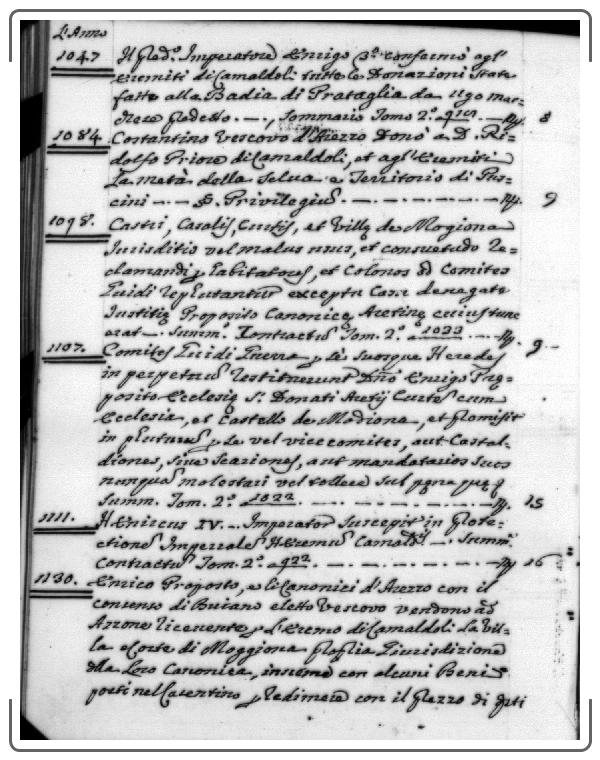 L'Anno
1047. Il sud.º Imperatore Enrigo 3.º confermò agl'
Eremiti di Camaldoli tutte le Donazioni State
fatte alla Badia di Prataglia da Ugo Mar=
chese .—., Sommario Tomo 2.º — 8
1084. Costantino Vescovo d'Arezzo Donò a D. Ri=
dolfo Priore di Camaldoli, et agl'Eremiti
La metà della Selva e Territorio di
cini — Privilegiũ — 9
1098. Castri, Casalis, Curtis, et Villę de Mogiona
Jurisditio vel malus usus, et consuetudo re=
clamandi habitatores, et Colonos ad Comites
Guidi exceptu denegate
Justitię Proposito Canonicę Aretine cuius tunc
erat — Summ. Contractuũ Tom. 2.º 1033 — 9.
1107. Comites Guidi Guerra, suosque Heredes
in perpetuũ restituerunt Dño Enrigo Prę=
posito Ecclesię S. Donati Curtẽ cum
Ecclesia, et Castello de Modiona, et promisit
in futurũ vel vicecomites, aut Castal=
diones, sive, aut mandatarios suos
nunquã molestari vel tollere sub
Summ. Tom. 2.º 1022 — 15
1111. Henricus IV. — Imperator suscepit in prote=
ctionẽ Imperialẽ Heremũ Camald. — Summ.
Contractuũ Tom. 2.º 922 — 16
1130. Enrico Proposto, e li Canonici d'Arezzo con il
consenso di Buiano eletto Vescovo vendono ad
Azzone ricevente L'Eremo di Camaldoli La Vil=
la e Corte di Moggiona Giurisdizione
della Loro Canonica, insieme con alcuni Beni
posti nel Casentino redimere con il prezzo di